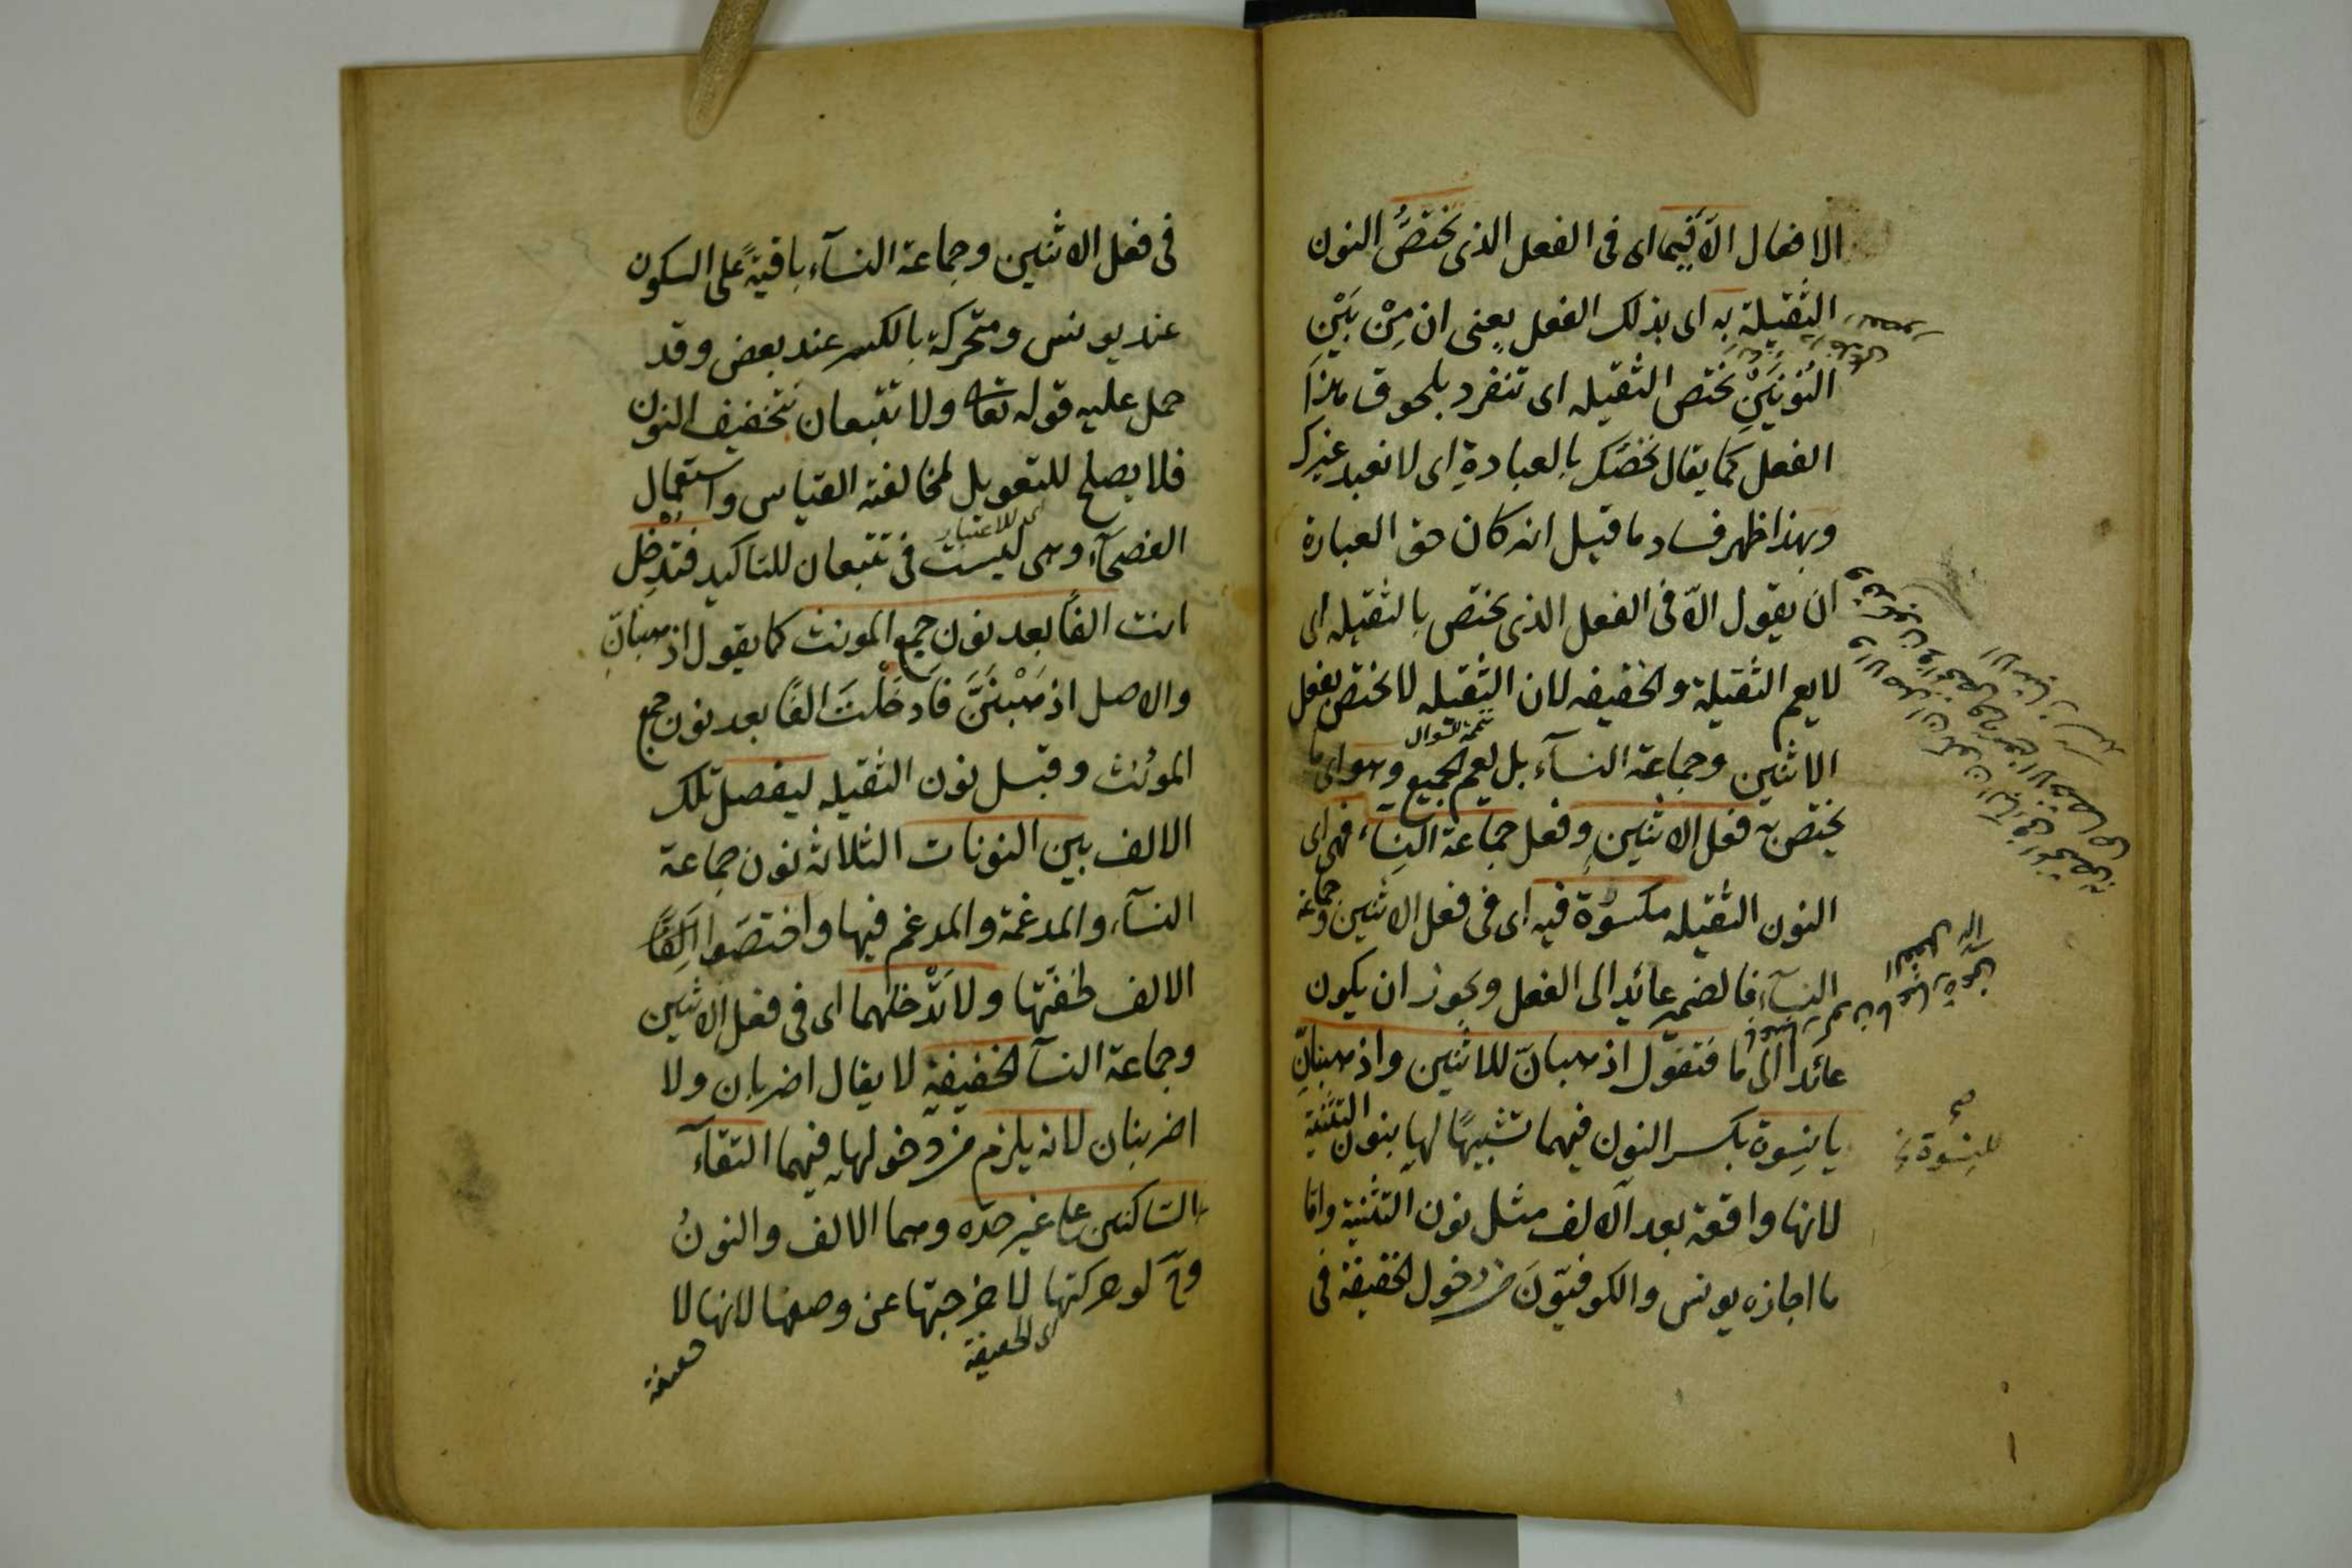 الافعال الّا فيما اى فى الفعل الذى تختصُّ النون
الثقيلة به اى بذلك الفعل يعنى ان مِنْ بَيْنِ
النُونَيْنِ تختص الثقيله اى تنفرد بلحوق هذا
الفعل كما يقال نخصّك بالعبادةِ اى لا نعبد غيرك
وبهذا ظهر فساد ما قيل انه كان حق العبارة
ان يقول الّا فى الفعل الذى يختص بالثقيله اى
لا يعم الثقيلة والخفيفه لان الثقيله لا تختص بفعل
الاثنين وجماعة النسآء بل يعم الجميع وهو اى ما
تتمة السؤال
يختص به فعل الاثنين وفعل جماعة النساء، فهى اى
النون الثقيله مكسورة فيه اى فى فعل الاثنين وجماعة
النسآء فالضمير عائد الى الفعل ويجوز ان يكون
عائدا الى ما فتقول اذهبانّ للاثنين واذهبنانِّ
يا نِسوة بكسر النون فيهما تشبيهًا لها بنون التثنية
للنِسْوَة
صح
لانها واقعة بعد الالف مثل نون التثنية وامّا
ما اجازه يونس والكوفيّونَ من دخول الخفيفة فى
فى فعل الاثنين وجماعة النسآء باقيةً على السكون
عند يونس ومتحركة بالكسر عند بعض وقد
حمل عليه قوله تعا ولا تتبعان بتخفيف النون
فلا يصلح للتعويل لمخالفته القياس واستعمال
اى للاعتبار
الفصحآء وهى ليست فى تتبعان للتاكيد فتُدْخِل
انت الفًا بعد نون جمع المونث كما يقول اذهبنانِّ
والاصل اذهَبْنَنَّ فَاَدخَلْتَ الفًا بعد نون جمع
الموُنث وقبل نون الثقيله ليفصل تلك
الالف بين النونات الثلاثة نون جماعة
النسآء، والمدغمة والمدغم فيها واختصَوا الِفًا
الالف لخفّتها ولا تَدْخلهما اى فى فعل الاثنين
وجماعة النسآ الخفيفة لا يقال اضربان ولا
اضربنان لانه يلزم من دخولها فيهما التقآء
الساكنين على غير حدّه وهما الالف والنونُ
وح لو حركتها لاخرجتها عن وصفها لانها لا
اى الخفيفة